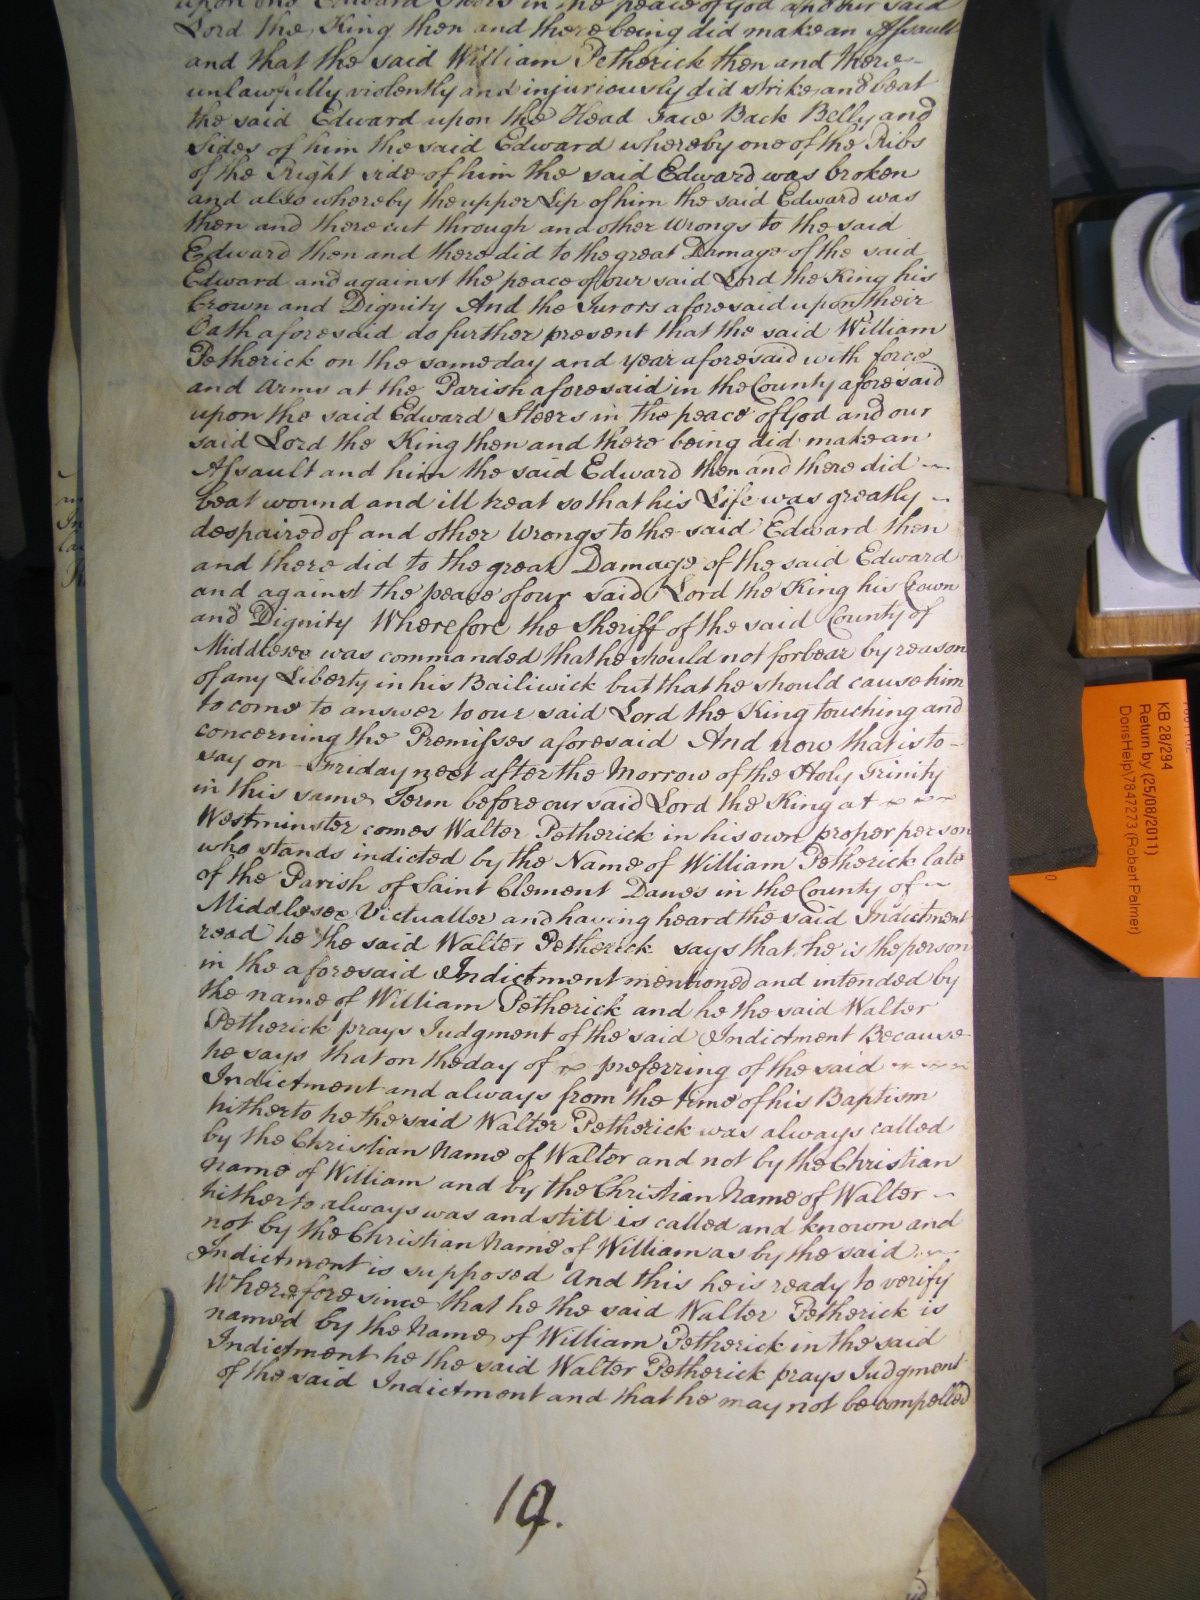 upon one Edward Steers in the peace of God and our said
Lord the King then and there being did make an Assault
and that the said William Petherick then and there
unlawfully violently and injuriously did strike and beat
the said Edward upon the Head Face Back Belly and
Sides of him the said Edward whereby one of the Ribs
of the Right side of him the said Edward was broken
and also whereby the upper Lip of him the said Edward was
then and there cut through and other Wrongs to the said
Edward then and there did to the great Damage of the said
Edward and against the peace of our said Lord the King his
Crown and Dignity And the Jurors aforesaid upon their
Oath aforesaid do further present that the said William
Petherick on the same day and year aforesaid with force
and Arms at the Parish aforesaid in the County aforesaid
upon the said Edward Steers in the peace of God and our
said Lord the King then and there being did make an
Assault and him the said Edward then and there did
beat wound and ill treat so that his Life was greatly
despaired of and other Wrongs to the said Edward then
and there did to the great Damage of the said Edward
and against the peace of our said Lord the King his Crown
and Dignity Wherefore the Sheriff of the said County of
Middlesex was commanded that he should not forbear by reason
of any Liberty in his Bailiwick but that he should cause him
to come to answer to our said Lord the King touching and
concerning the Premisses aforesaid And now that is to
say on Friday next after the Morrow of the Holy Trinity
in this same Term before our said Lord the King at
Westminster comes Walter Petherick in his own proper person
who stands indicted by the Name of William Petherick late
of the Parish of Saint Clement Danes in the County of
Middlesex Victualler and having heard the said Indictment
read he the said Walter Petherick says that he is the person
in the aforesaid Indictment mentioned and intended by
the name of William Petherick and he the said Walter
Petherick prays Judgment of the said Indictment Because
he says that on the day of preferring of the said
Indictment and always from the time of his Baptism
hitherto he the said Walter Petherick was always called
by the Christian Name of Walter and not by the Christian
Name of William and by the Christian Name of Walter
hitherto always was and still is called and known and
not by the Christian Name of William as by the said
Indictment is supposed And this he is ready to verify
Wherefore since that he the said Walter Petherick is
named by the Name of William Petherick in the said
Indictment he the said Walter Petherick prays Judgment
of the said Indictment and that he may not be compelled
19.
KB 28/294
Return by (25/08/2011)
DorisHelp\7847273 (Robert Palmer)